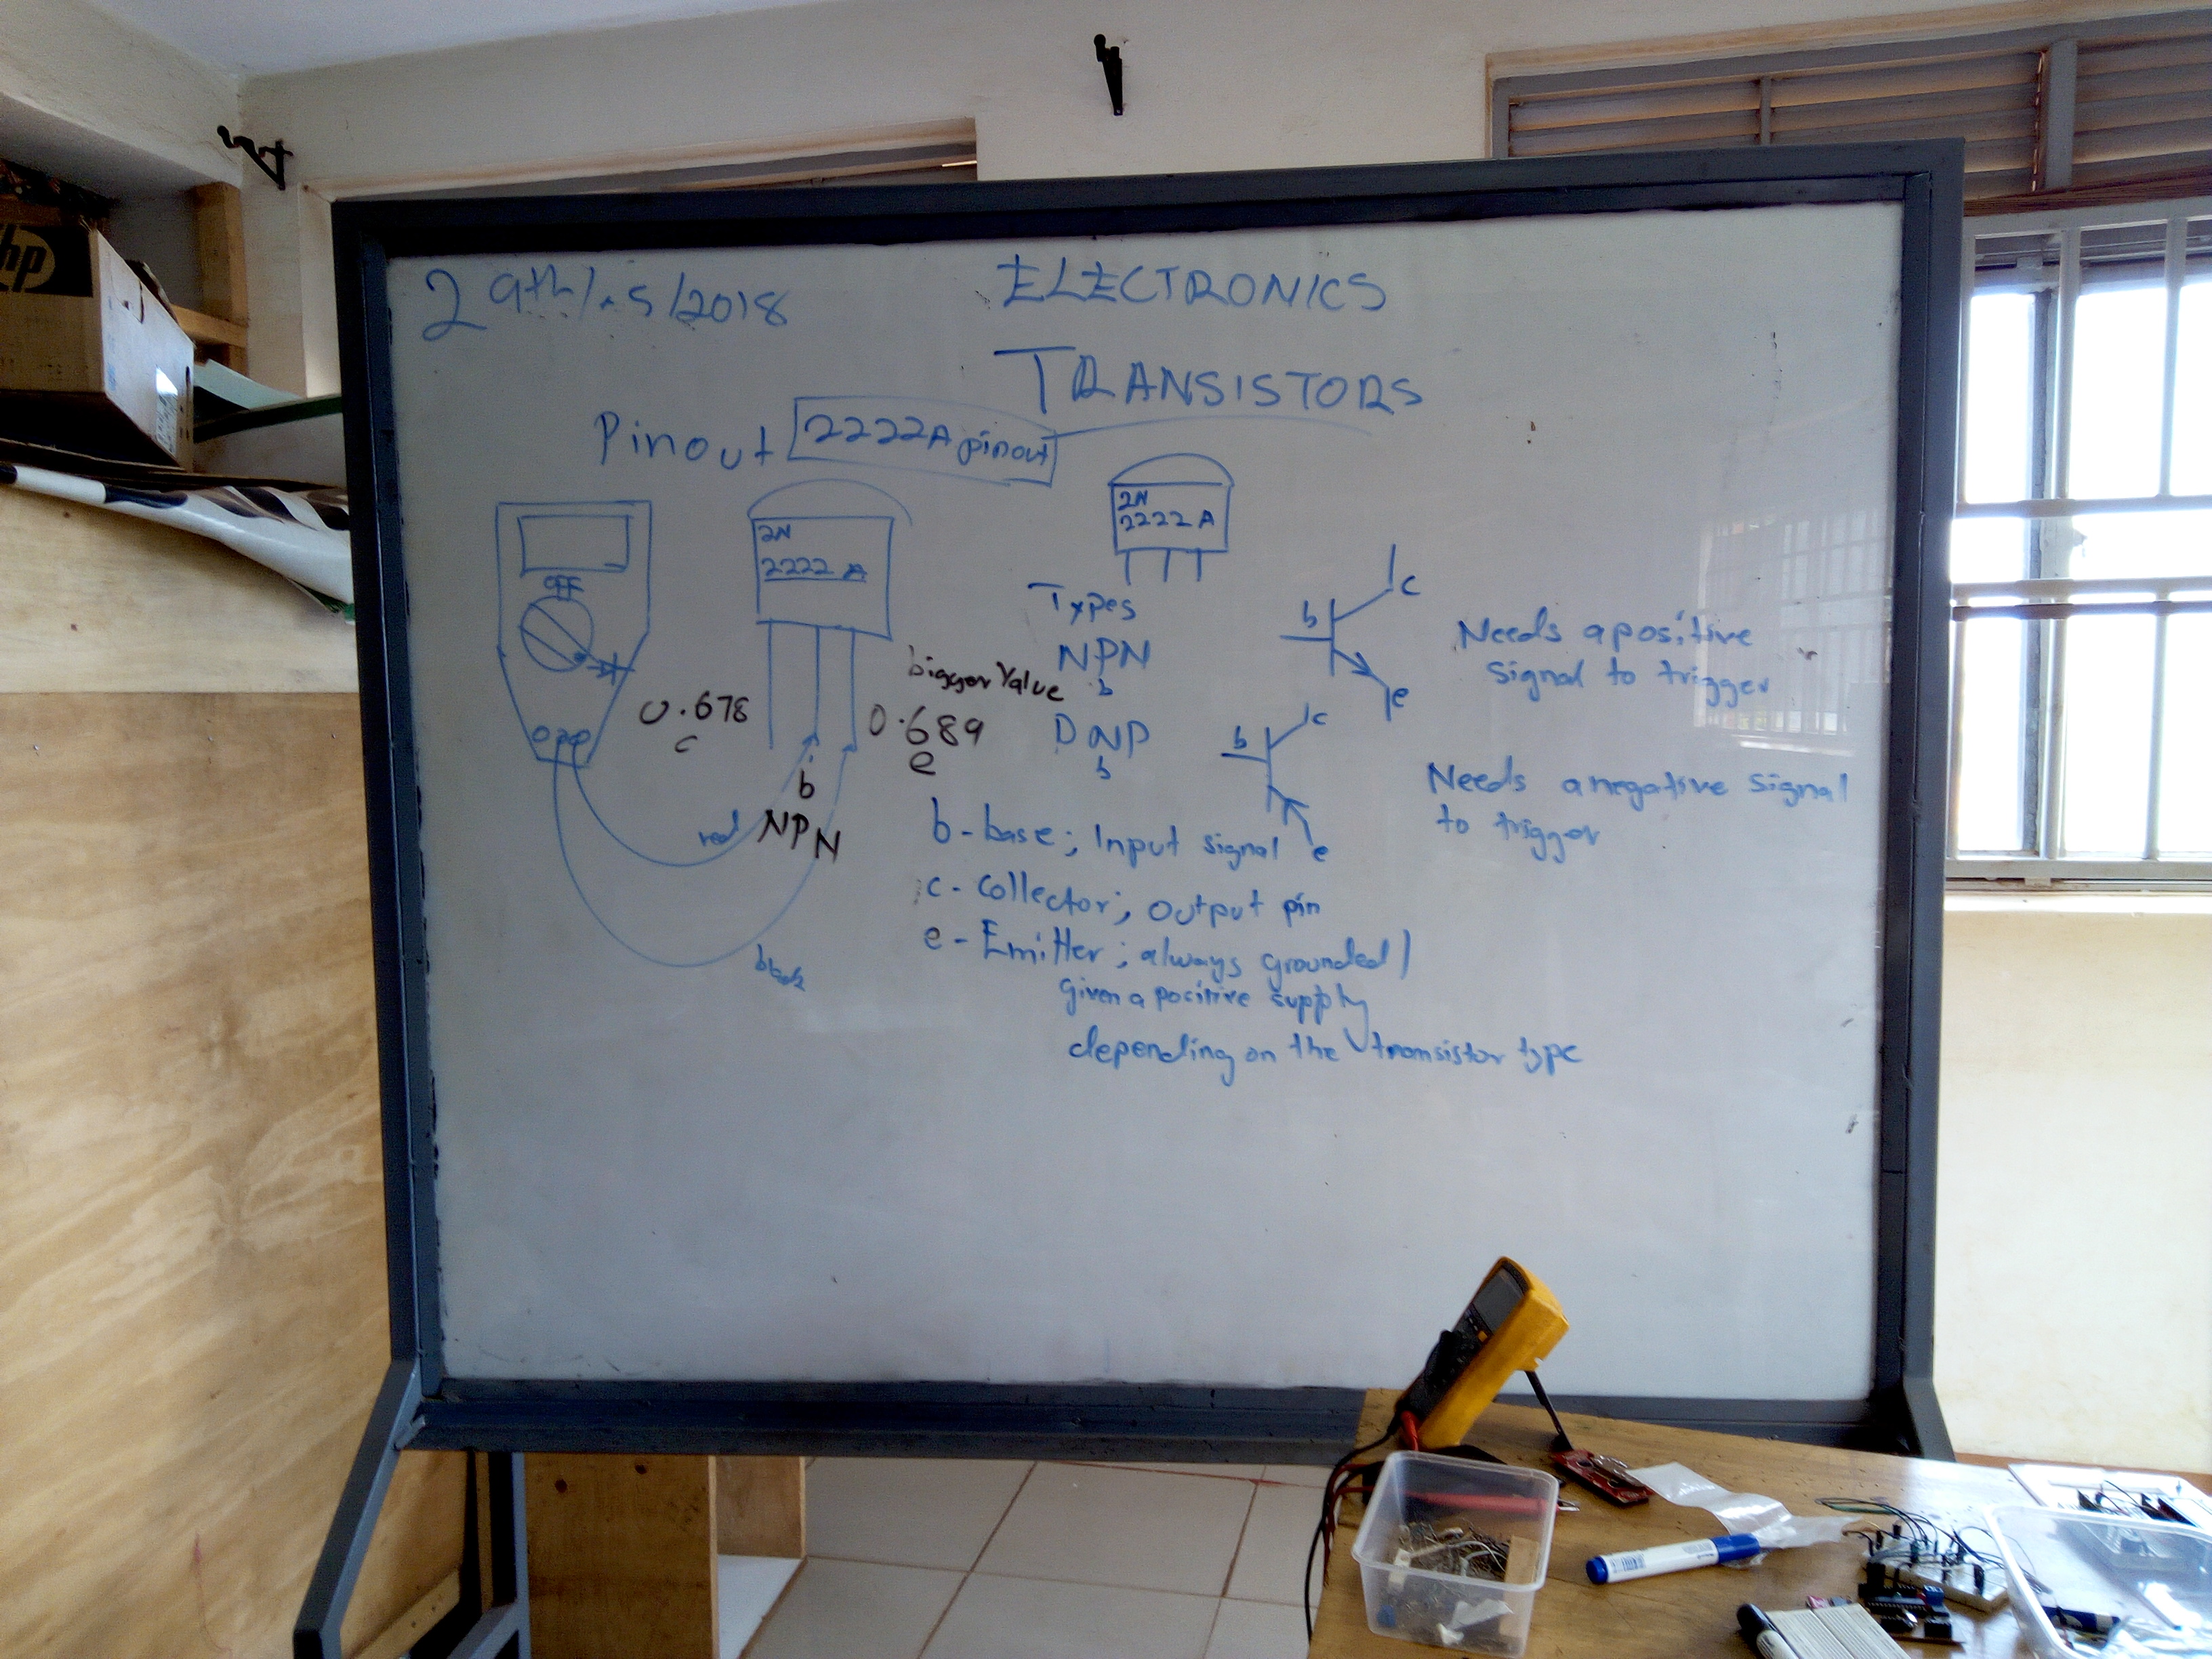 hp
29th/05/2018
ELECTRONICS
TRANSISTORS
Pinout 2222A pinout
OFF
2N
2222 A
0.678
c
b
NPN
bigger Value
0.689
e
red
black
2N
2222 A
Types
NPN
b
b
c
e
Needs a positive
signal to trigger
PNP
b
b
c
e
Needs a negative signal
to trigger
b - base; Input signal
c - Collector; output pin
e - Emitter; always grounded/
given a positive supply
depending on the transistor type